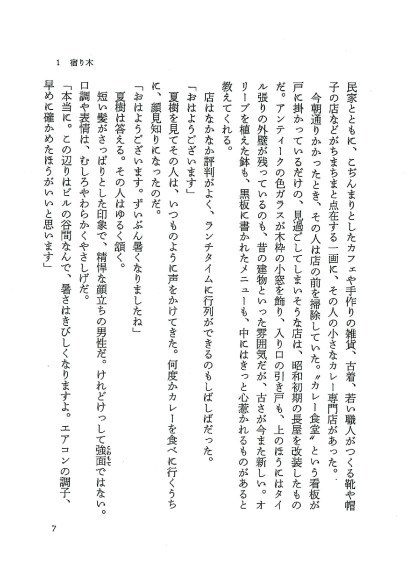 1 宿り木
民家とともに、こぢんまりとしたカフェや手作りの雑貨、古着、若い職人がつくる靴や帽
子の店などがちまちまと点在する一画に、その人の小さなカレー専門店があった。
今朝通りかかったとき、その人は店の前を掃除していた。〝カレー食堂〟という看板が
戸に掛かっているだけの、見過ごしてしまいそうな店は、昭和初期の長屋を改装したもの
だ。アンティークの色ガラスが木枠の小窓を飾り、入り口の引き戸も、上のほうにはタイ
ル張りの外壁が残っているのも、昔の建物といった雰囲気だが、古さが今また新しい。オ
リーブを植えた鉢も、黒板に書かれたメニューも、中にはきっと心惹かれるものがあると
教えてくれる。
店はなかなか評判がよく、ランチタイムに行列ができるのもしばしばだった。
「おはようございます」
夏樹を見てその人は、いつものように声をかけてきた。何度かカレーを食べに行くうち
に、顔見知りになったのだ。
「おはようございます。ずいぶん暑くなりましたね」
夏樹は答える。その人はゆるく頷く。
短い髪がさっぱりとした印象で、精悍な顔立ちの男性だ。けれどけっして強面ではない。
口調や表情は、むしろやわらかくやさしげだ。
「本当に。この辺りはビルの谷間なんで、暑さはきびしくなりますよ。エアコンの調子、
早めに確かめたほうがいいと思います」
7